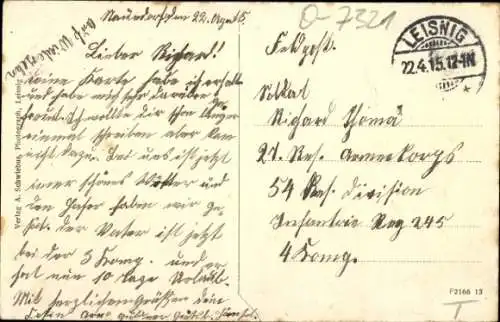 Naundorf den 22. April 15.
Lieber Richard!
Deine Karte habe ich erhalten
und habe mich sehr darüber ge
freut. Ich wollte dir schon länger
einmal schreiben aber kam
nicht dazu. Bei uns ist jetzt
immer schönes Wetter und
den Hafer haben wir ge
sät. der Vater ist jetzt
bei der 3 Komp. und er
hat nur 10 Tage Urlaub.
Mit herzlichen Grüßen dein
auf Wiedersehn
Verlag A. Schwiebus, Photograph, Leisnig
O-7321
LEISNIG
22.4.15.12-1N
*
Feldpost.
Soldat
Richard Thomä
27. Res. Armeekorps
54 Res. Division
Infantrie Reg 245
4 Komp.
F2166 13
T